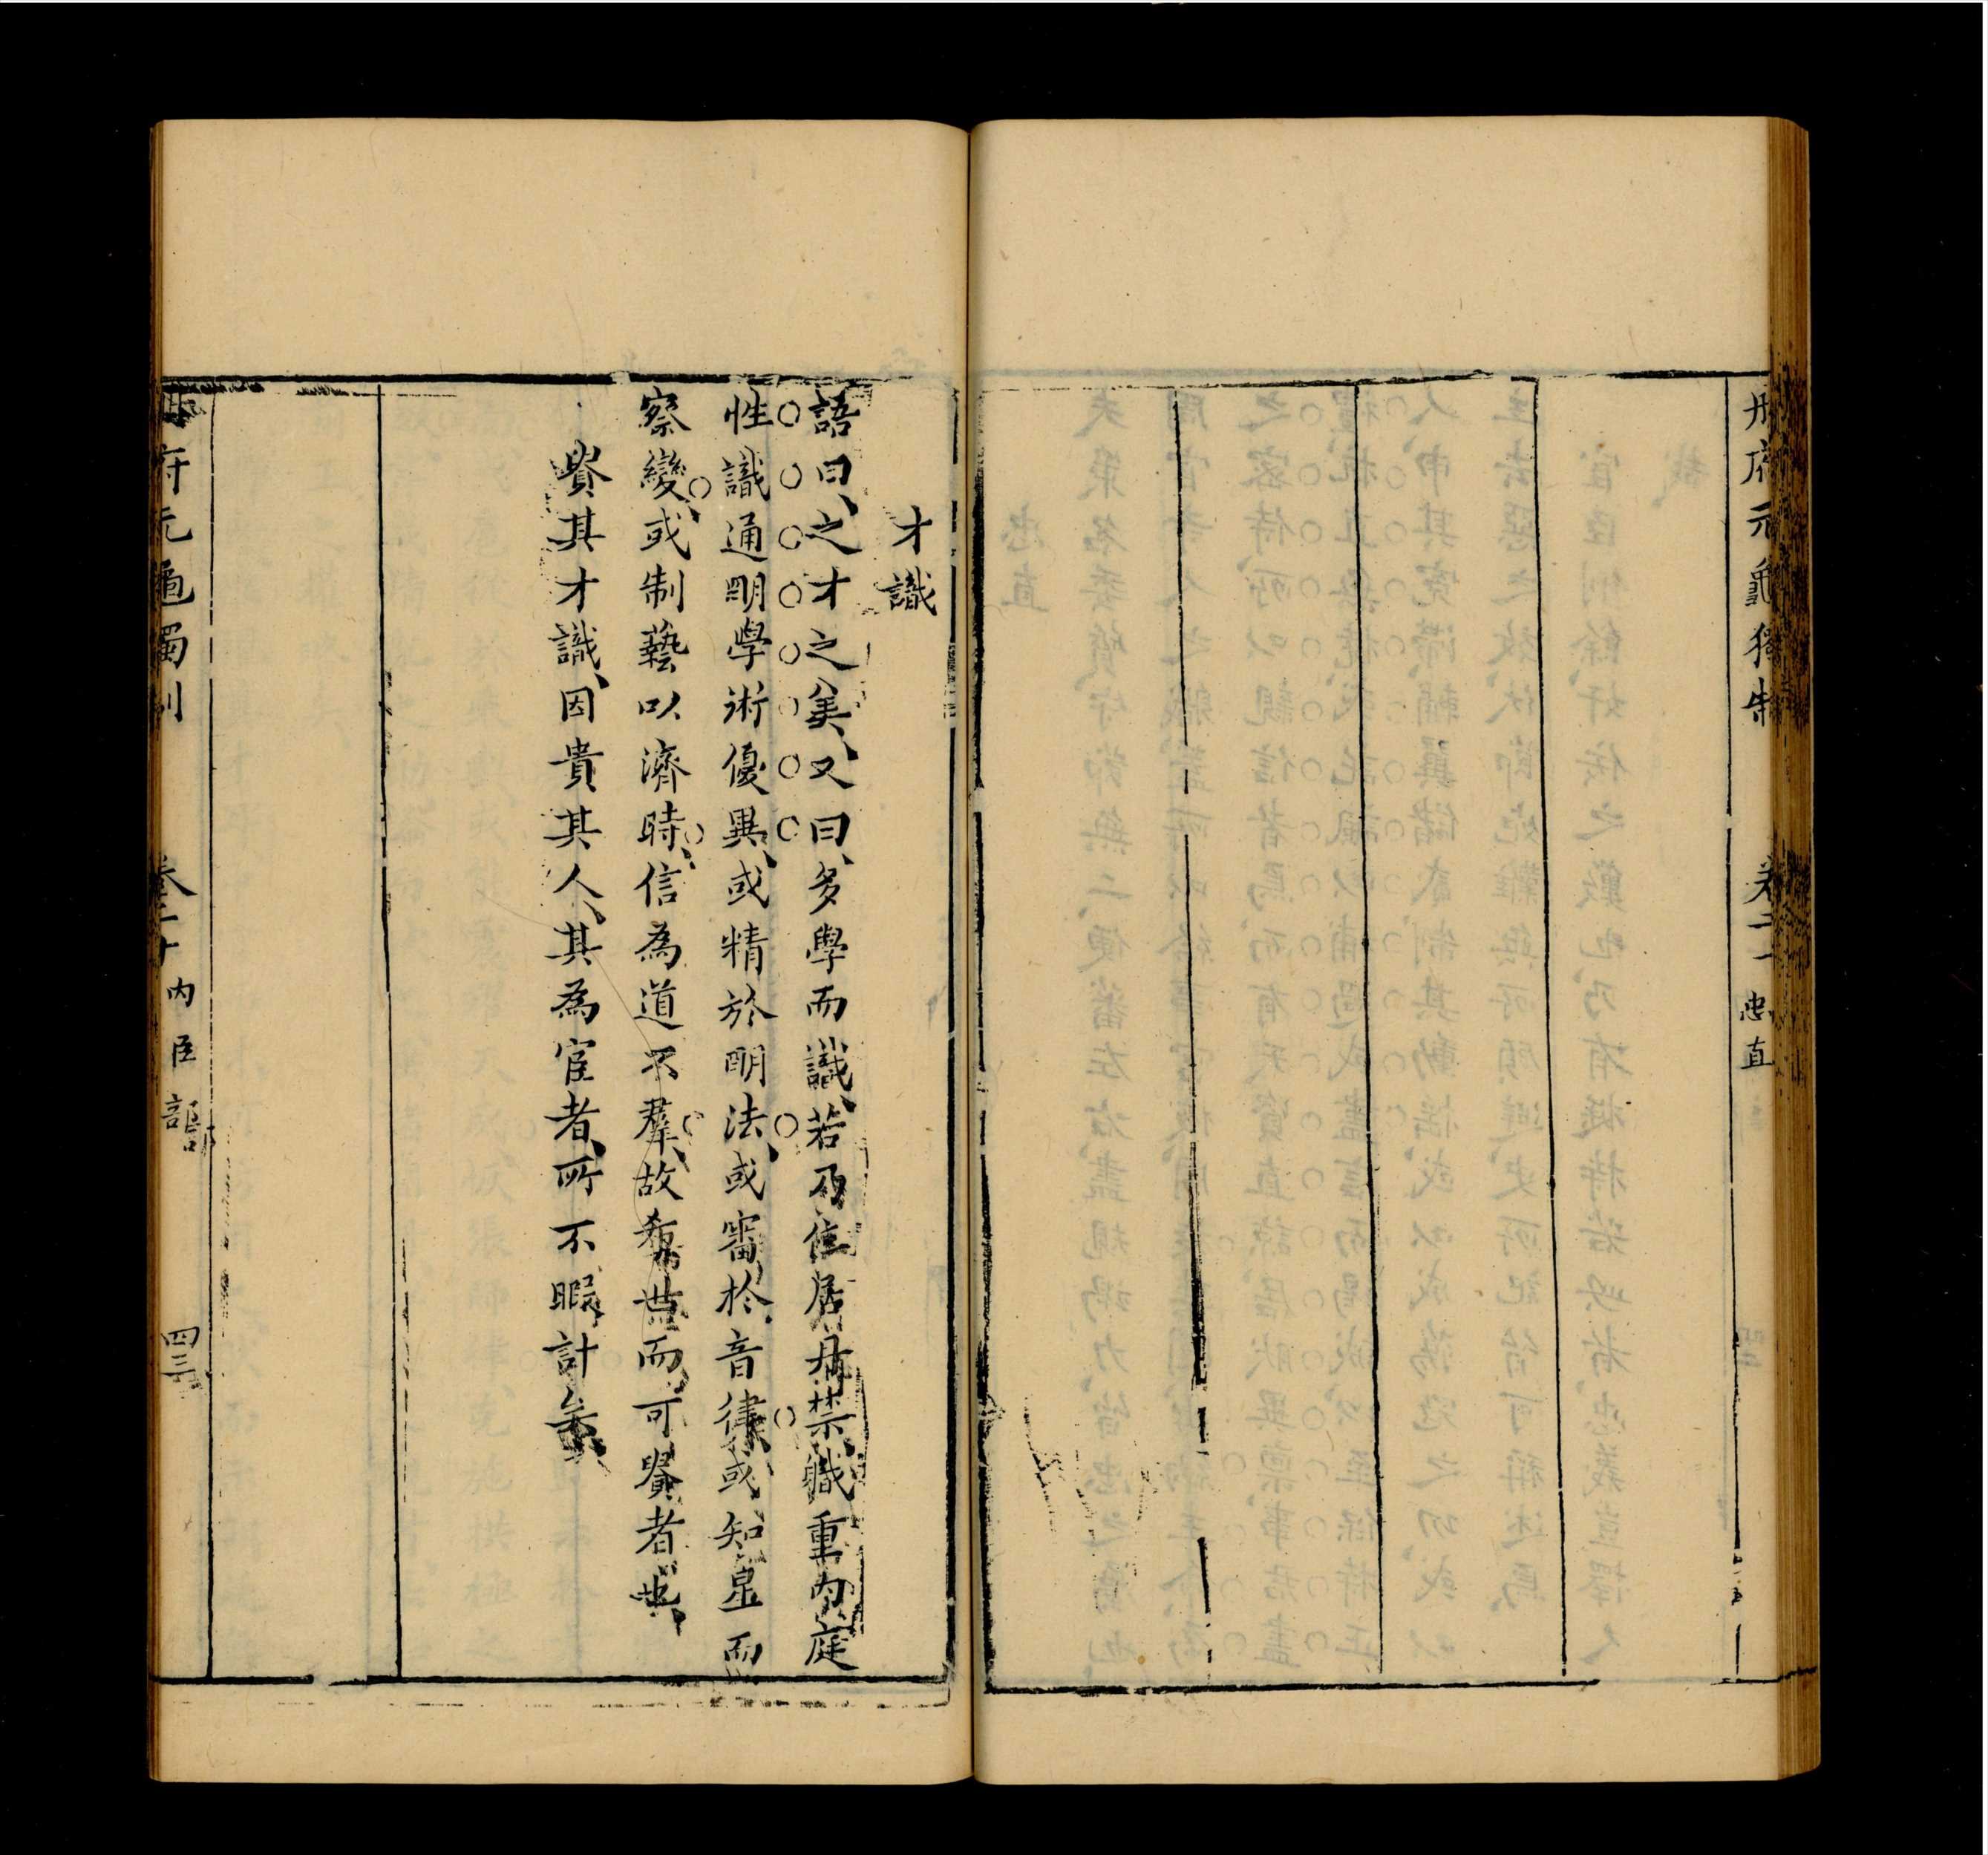 册府元龜獨制
卷二十
忠直
才識
語曰、之才之美、又曰、多學而識、若乃位居丹禁、職重內庭
性識通明學術優異、或精於明法、或審於音律、或知星而
察變、或制藝以濟時、信為道不羣、故希世而可貴者也、
貴其才識、因貴其人、其為宦者、所不暇計矣、
册府元龜獨制
卷二十
內臣部
四三